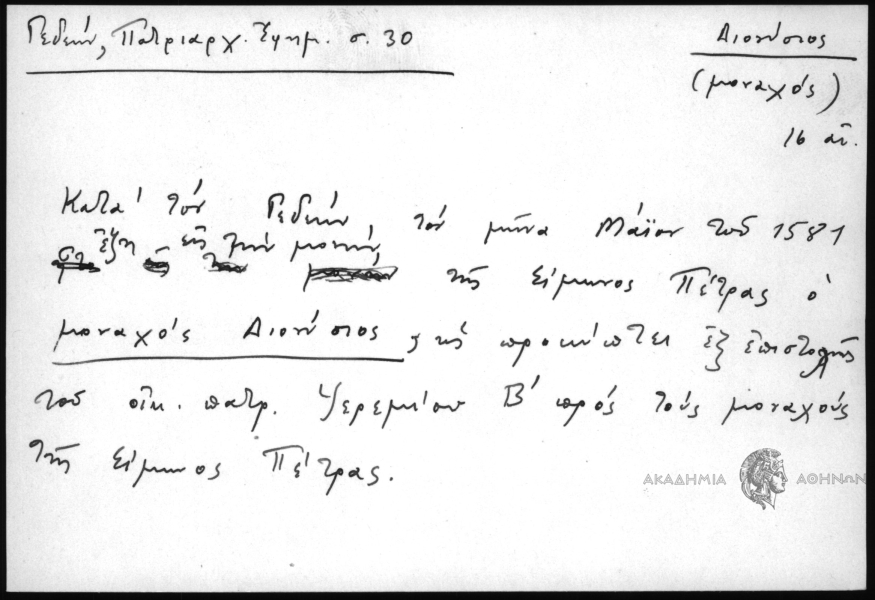 Γεδεών, Πατριαρχ. Ἐφημ. σ. 30
Διονύσιος
(μοναχός)
16 αἰ.
Κατά τόν Γεδεών τόν μῆνα Μάϊον τοῦ 1581
ἔζη εἰς τήν μονήν τῆς Σίμωνος Πέτρας ὁ
μοναχός Διονύσιος, ὡς προκύπτει ἐξ ἐπιστολῆς
τοῦ οἰκ. πατρ. Ἱερεμίου Β' πρός τούς μοναχούς
τῆς Σίμωνος Πέτρας.
ΑΚΑΔΗΜΙΑ ΑΘΗΝΩΝ